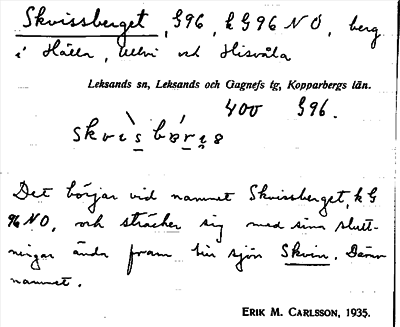 Skvissberget, G96, k G 96 N Ö, berg
i Hälla, Ullvi och Hisvåla
Leksands sn, Leksands och Gagnefs tg, Kopparbergs län.
400 G96.
Det börjar vid namnet Skvissberget, k G
96 NO, och sträcker sig med sina slutt-
ningar ända fram till sjön Skvin. Därav
namnet.
ERIK M. CARLSSON, 1935.